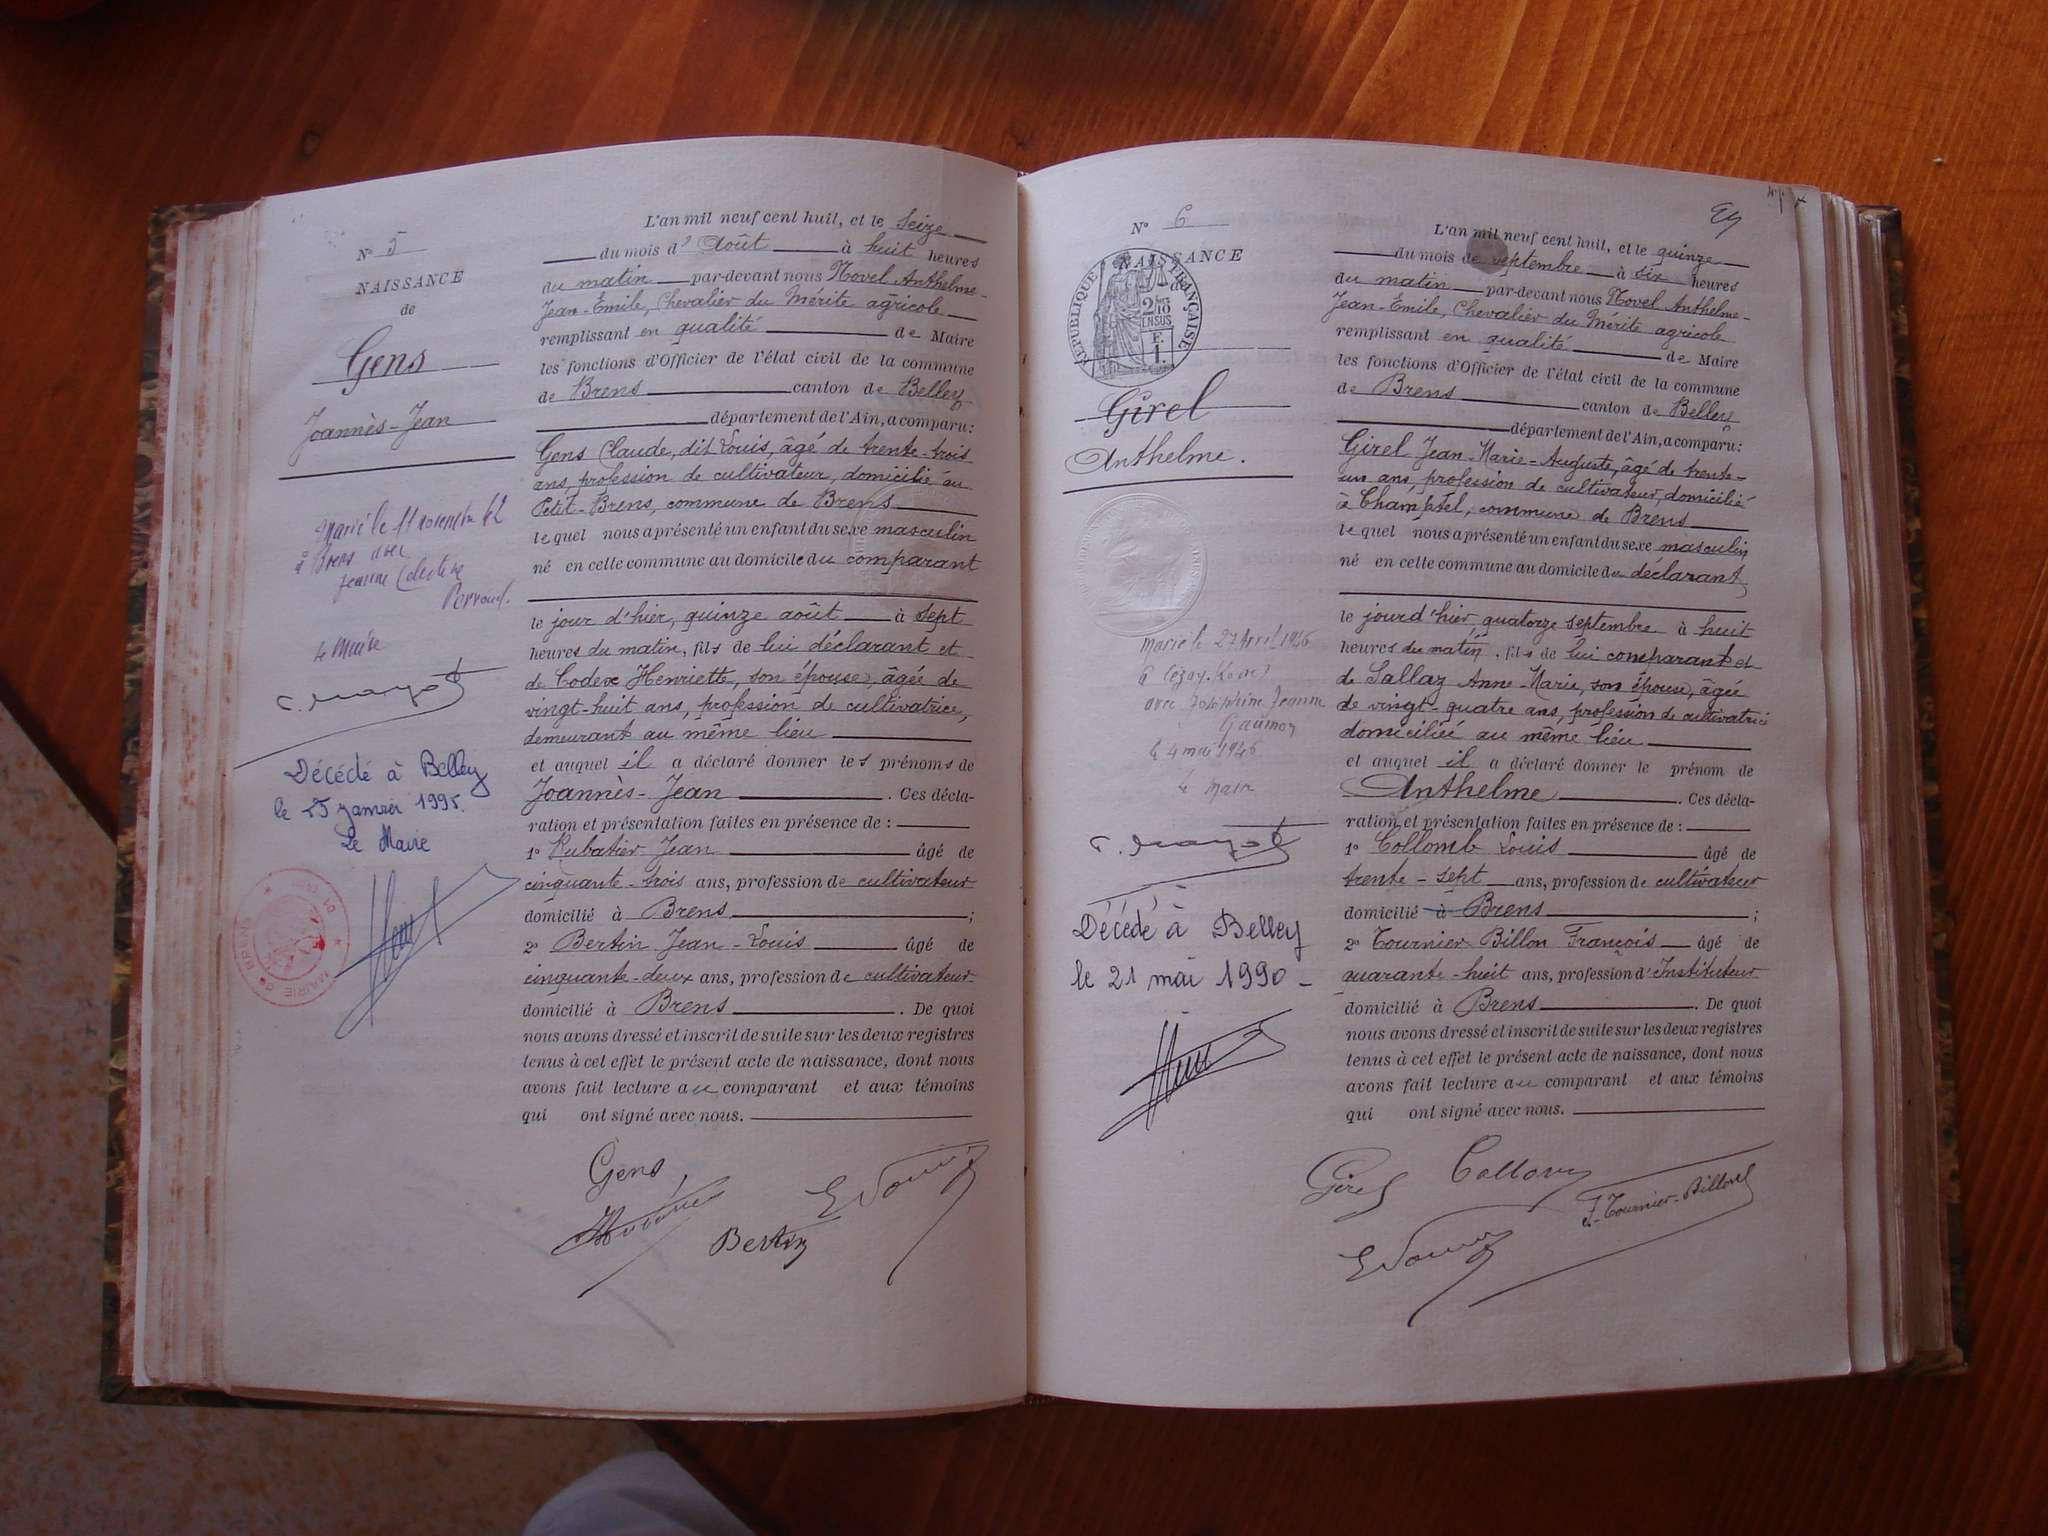 N° 5
NAISSANCE
de
Gens
Joannès-Jean
Marié le 11 novembre 42
à Brens avec
Jeanne Célestine
Perroud.
Le Maire
Décédé à Belley
le 25 janvier 1995.
Le Maire
MAIRIE de BRENS
L'an mil neuf cent huit, et le seize
du mois d' Août à huit heures
du matin par-devant nous Novel Anthelme-
Jean-Emile, Chevalier du Mérite agricole
remplissant en qualité de Maire
les fonctions d'Officier de l'état civil de la commune
de Brens canton de Belley
département de l'Ain, a comparu:
Gens Claude, dit Louis, âgé de trente-trois
ans, profession de cultivateur, domicilié au
Petit-Brens, commune de Brens
lequel nous a présenté un enfant du sexe masculin
né en cette commune au domicile du comparant
le jour d'hier, quinze août à sept
heures du matin, fils de lui déclarant et
de Codex Henriette, son épouse, âgée de
vingt-huit ans, profession de cultivatrice,
demeurant au même lieu
et auquel il a déclaré donner les prénoms de
Joannès-Jean. Ces décla-
ration et présentation faites en présence de :
1° Rubatier Jean âgé de
cinquante-trois ans, profession de cultivateur
domicilié à Brens ;
2° Bertin Jean-Louis âgé de
cinquante-deux ans, profession de cultivateur
domicilié à Brens. De quoi
nous avons dressé et inscrit de suite sur les deux registres
tenus à cet effet le présent acte de naissance, dont nous
avons fait lecture au comparant et aux témoins
qui ont signé avec nous.
Gens
Bertin
N° 6
NAISSANCE
de
RÉPUBLIQUE FRANÇAISE
2/10
EN SUS
F.
1.
Girel
Anthelme.
Marié le 27 Avril 1946
avec Joséphine Jeanne
le 4 mai 1946
Le Maire
Décédé à Belley
le 21 mai 1990 -
L'an mil neuf cent huit, et le quinze
du mois de septembre à six heures
du matin par-devant nous Novel Anthelme-
Jean-Emile, Chevalier du Mérite agricole
remplissant en qualité de Maire
les fonctions d'Officier de l'état civil de la commune
de Brens canton de Belley
département de l'Ain, a comparu:
Girel Jean-Marie-Auguste, âgé de trente-
un ans, profession de cultivateur, domicilié
à Champtel, commune de Brens
lequel nous a présenté un enfant du sexe masculin
né en cette commune au domicile du déclarant
le jour d'hier quatorze septembre à huit
heures du matin, fils de lui comparant et
de Sallaz Anne-Marie, son épouse, âgée
de vingt-quatre ans, profession de cultivatrice
domiciliée au même lieu
et auquel il a déclaré donner le prénom de
Anthelme. Ces décla-
ration et présentation faites en présence de :
1° Collomb Louis âgé de
trente-sept ans, profession de cultivateur
domicilié à Brens ;
2° Tournier Billon François âgé de
quarante-huit ans, profession d'Instituteur
domicilié à Brens. De quoi
nous avons dressé et inscrit de suite sur les deux registres
tenus à cet effet le présent acte de naissance, dont nous
avons fait lecture au comparant et aux témoins
qui ont signé avec nous.
Girel Collomb
F. Tournier-Billon